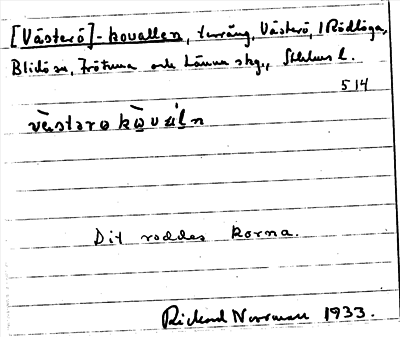 [Västerö]-kovallen, terräng, Västerö, i Rödlöga,
Blidö sn, Frötuna och Länna skg., Sthlms l.
514
västərə kòvál̥n
Dit roddes korna.
Rickard Norrman 1933.